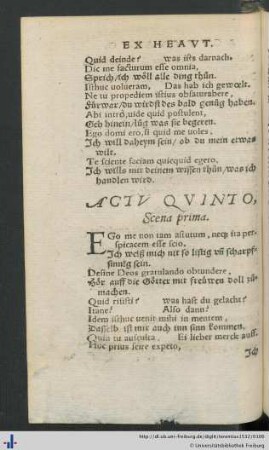 EX HEAVT.
Quid deinde? was ists darnach.
Dic me facturum esse omnia,
Sprich/ich wöll alle ding thůn.
Isthuc uolueram, Das hab ich gewoelt.
Ne tu propediem istius obsaturabere,
Fürwar/du würdst des bald genůg haben.
Abi intrò, uide quid postulent,
Geh hinein/lůg was sie begeren.
Ego domi ero, si quid me uoles,
Ich will daheym sein/ ob du mein etwas
wilt.
Te sciente faciam quicquid egero,
Ich wills mit deinem wissen thůn/was ich
handlen wird.
ACTV QVINTO,
Scena prima.
EGo me non tam astutum, neq; ita per-
spicacem esse scio,
Ich weiß mich nit so listig vñ scharpff-
sinnig sein.
Desine Deos gratulando obtundere,
Hör auff die Götter mit freüwen doll zů-
machen.
Quid risisti? was hast du gelacht?
Itane? Also dann?
Idem isthuc uenit mihi in mentem,
Dasselb ist mir auch inn sinn kommen.
Quia tu auscŭlta, Ei lieber merck auff.
Hoc prius scire expeto,
Ich
http://dl.ub.uni-freiburg.de/diglit/terentius1532/0100
© Universitätsbibliothek Freiburg